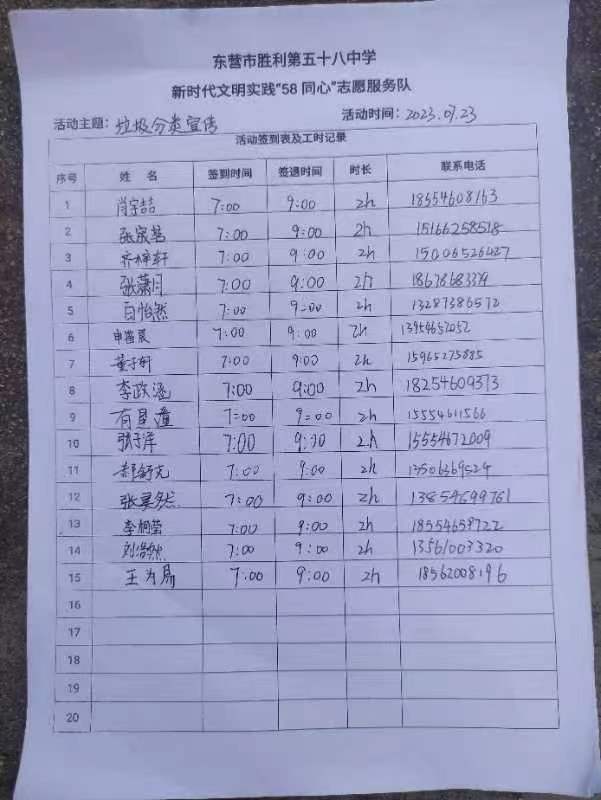 东营市胜利第五十八中学
新时代文明实践“58 同心”志愿服务队
活动主题：垃圾分类宣传 活动时间：2023.07.23
活动签到表及工时记录
序号 姓 名 签到时间 签退时间 时长 联系电话
1 肖宇喆 7:00 9:00 2h 18554608163
2 7:00 9:00 2h 15166258518
3 7:00 9:00 2h 15006526427
4 张萧月 7:00 9:00 2h
5 白怡然 7:00 9:00 2h 13287386572
6 7:00 9:00 2h 13954657052
7 董子轩 7:00 9:00 2h 15965275885
8 李政涵 7:00 9:00 2h 18254609373
9 7:00 9:00 2h 15554611566
10 张子洋 7:00 9:00 2h 15554672009
11 7:00 9:00 2h 13506369524
12 7:00 9:00 2h 13854699761
13 李桐莹 7:00 9:00 2h 18554658722
14 刘浩然 7:00 9:00 2h 13561003320
15 王为易 7:00 9:00 2h 18562008196
16
17
18
19
20